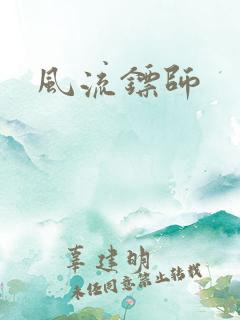 風流鏢師
辜建明
未经同意禁止转载